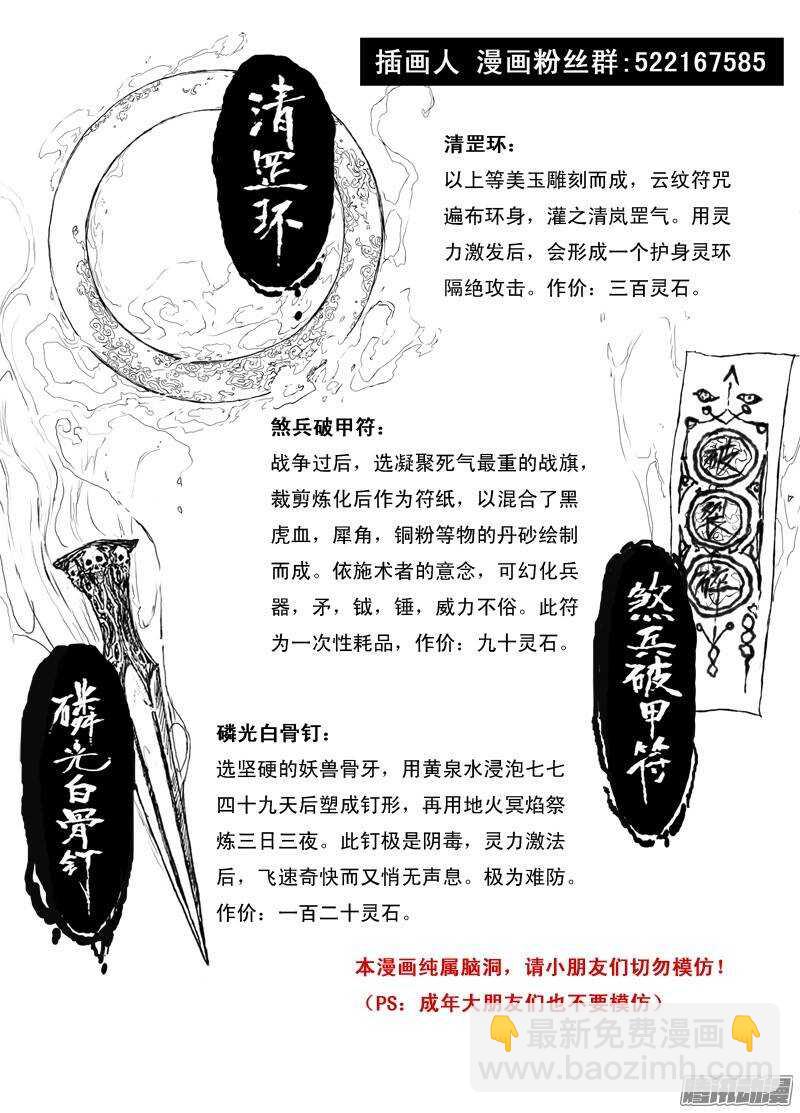 插画人 漫画粉丝群:522167585
清罡环
清罡环：
以上等美玉雕刻而成，云纹符咒
遍布环身，灌之清岚罡气。用灵
力激发后，会形成一个护身灵环
隔绝攻击。作价：三百灵石。
煞兵破甲符：
战争过后，选凝聚死气最重的战旗，
裁剪炼化后作为符纸，以混合了黑
虎血，犀角，铜粉等物的丹砂绘制
而成。依施术者的意念，可幻化兵
器，矛，钺，锤，威力不俗。此符
为一次性耗品，作价：九十灵石。
破
裂
碎
煞兵破甲符
磷光白骨钉
磷光白骨钉：
选坚硬的妖兽骨牙，用黄泉水浸泡七七
四十九天后塑成钉形，再用地火冥焰祭
炼三日三夜。此钉极是阴毒，灵力激法
后，飞速奇快而又悄无声息。极为难防。
作价：一百二十灵石。
本漫画纯属脑洞，请小朋友们切勿模仿！
（PS：成年大朋友们也不要模仿）
👇最新免费漫画👇
www.baozimh.com
腾讯动漫